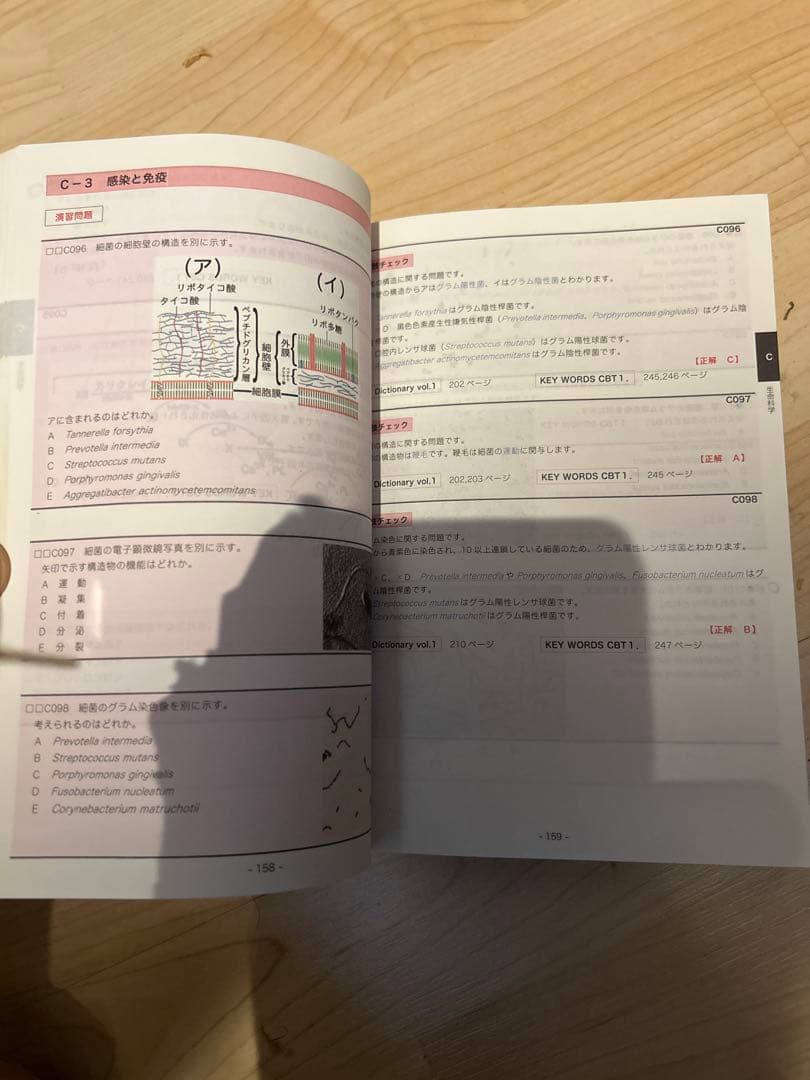 C－3 感染と免疫
演習問題
□□C096 細菌の細胞壁の構造を別に示す。
(ア)
(イ)
リポタイコ酸
タイコ酸
リポタンパク
リポ多糖
ペプチドグリカン層
細胞壁
外膜
細胞膜
アに含まれるのはどれか。
A Tannerella forsythia
B Prevotella intermedia
C Streptococcus mutans
D Porphyromonas gingivalis
E Aggregatibacter actinomycetemcomitans
□□C097 細菌の電子顕微鏡写真を別に示す。
矢印で示す構造物の機能はどれか。
A 運 動
B 凝 集
C 付 着
D 分 泌
E 分 裂
□□C098 細菌のグラム染色像を別に示す。
考えられるのはどれか。
A Prevotella intermedia
B Streptococcus mutans
C Porphyromonas gingivalis
D Fusobacterium nucleatum
E Corynebacterium matruchotii
- 158 -
C096
チェック
の構造に関する問題です。
の構造からアはグラム陽性菌、イはグラム陰性菌とわかります。
Tannerella forsythiaはグラム陰性桿菌です。
D 黒色色素産生性嫌気性桿菌（Prevotella intermedia、Porphyromonas gingivalis）はグラム陰
桿菌です。
口腔内レンサ球菌（Streptococcus mutans）はグラム陽性球菌です。
Aggregatibacter actinomycetemcomitansはグラム陰性桿菌です。
【正解 C】
Dictionary vol.1 202ページ KEY WORDS CBT 1． 245,246ページ
C
生命科学
C097
チェック
の構造に関する問題です。
の構造物は鞭毛です。鞭毛は細菌の運動に関与します。
【正解 A】
Dictionary vol.1 202,203ページ KEY WORDS CBT 1． 245ページ
C098
チェック
ム染色に関する問題です。
から青紫色に染色され、10以上連鎖している細菌のため、グラム陽性レンサ球菌とわかります。
×C、×D Prevotella intermediaや Porphyromonas gingivalis、Fusobacterium nucleatumはグ
ム陰性桿菌です。
Streptococcus mutansはグラム陽性レンサ球菌です。
Corynebacterium matruchotiiはグラム陽性桿菌です。
【正解 B】
Dictionary vol.1 210ページ KEY WORDS CBT 1． 247ページ
- 159 -